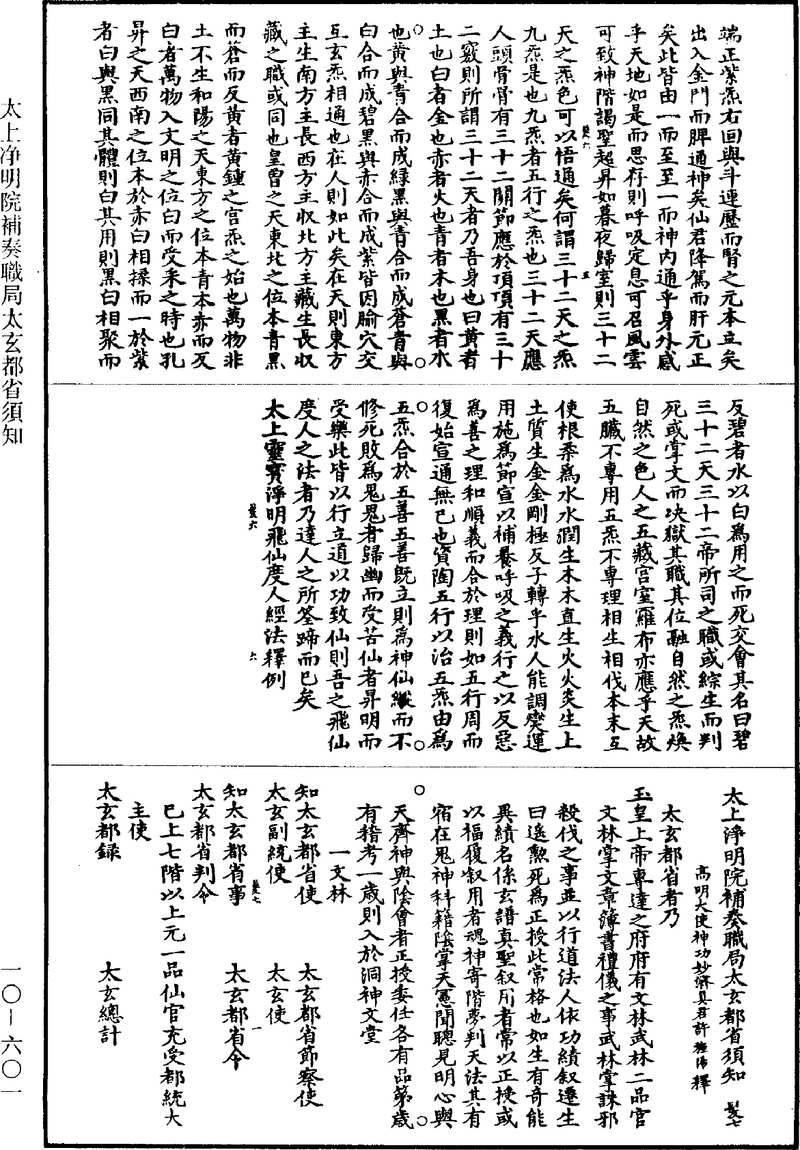 端正紫炁右回與斗連歷而腎之元本立矣
出入金門而脾通神矣仙君降駕而肝元正
矣此皆由一而至至一而神內通乎身外感
乎天地如是而思存則呼吸定息可召風雲
可致神階謁聖超昇如暮夜歸室則三十二
天之炁色可以悟通矣何謂三十二天之炁
九炁是也九炁者五行之炁也三十二天應
人頭骨骨有三十二關節應於頂頂有三十
二竅則所謂三十二天者乃吾身也曰黃者
土也白者金也赤者火也青者木也黑者水
也黃與青合而成綠黑與青合而成蒼青與
白合而成碧黑與赤合而成紫皆因腧穴交
互玄炁相通也在人則如此矣在天則東方
主生南方主長西方主收北方主藏生長收
藏之職或同也皇曾之天東北之位本青黑
而蒼而反黃者黃鍾之宫炁之始也萬物非
土不生和陽之天東方之位本青本赤而反
白者萬物入文明之位白而受采之時也孔
昇之天西南之位本於赤白相揉而一於紫
者白與黑同其體則白其用則黑白相聚而
反碧者水以白為用之而死交會其名曰碧
三十二天三十二帝所司之職或綜生而判
死或掌文而决獄其職其位融自然之炁煥
自然之色人之五藏宫室羅布亦應乎天故
五臟不專用五炁不專理相生相伐本末互
使根柔為水水潤生木木直生火火炎生上
土質生金金剛極反子轉乎水人能調燮運
用施為節宣以補養呼吸之義行之以反惡
為善之理和順義而合於理則如五行周而
復始宣通無已也資陶五行以治五炁由為
五炁合於五善五善既立則為神仙纔而不
修死敗為鬼鬼者歸幽而受苦仙者昇明而
受樂此皆以行立道以功致仙則吾之飛仙
度人之法者乃達人之所筌蹄而已矣
太上靈寶淨明飛仙度人經法釋例
髮六
六
太上淨明院補奏職局太玄都省須知 髮七
高明大使神功妙濟真君許旌陽釋
太玄都省者乃
玉皇上帝專達之府府有文林武林二品官
文林掌文章簿書禮儀之事武林掌誅邪
殺伐之事並以行道法人依功績叙遷生
曰遥勲死為正授此常格也如生有奇能
異績名係玄譜真聖叙用者常以正授或
以福履叙用者魂神寄階夢判天法其有
宿在鬼神科籍陰掌天憲聞聰見明心與
天齊神與陰會者正授委任各有品第歲
有稽考一歲則入於洞神文堂
一文林
知太玄都省使 太玄都省節察使
太玄副統使 太玄使
知太玄都省事 太玄都省令
髮七 一
太玄都省判令
已上七階以上元一品仙官充受都統大
主使
太玄都錄 太玄總計
太上净明院補奏職局太玄都省須知
一〇—六〇一